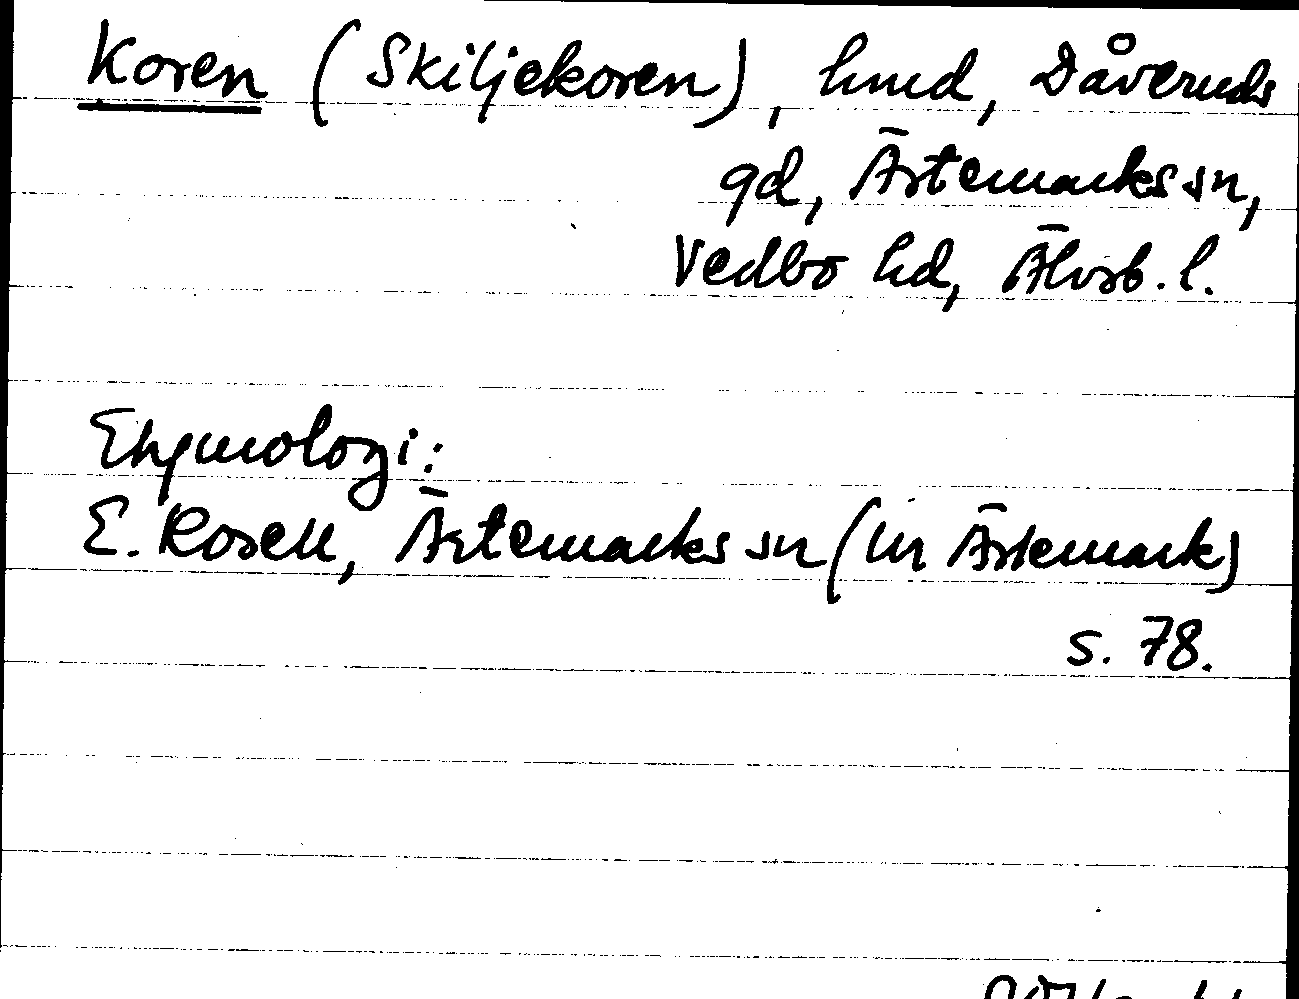 Koren (Skiljekoren), hmd, Dåveruds
gd, Ärtemarks sn,
Vedbo hd, Älvsb. l.
Etymologi:
E. Rosell, Ärtemarks sn (ur Ärtemark)
s. 78.